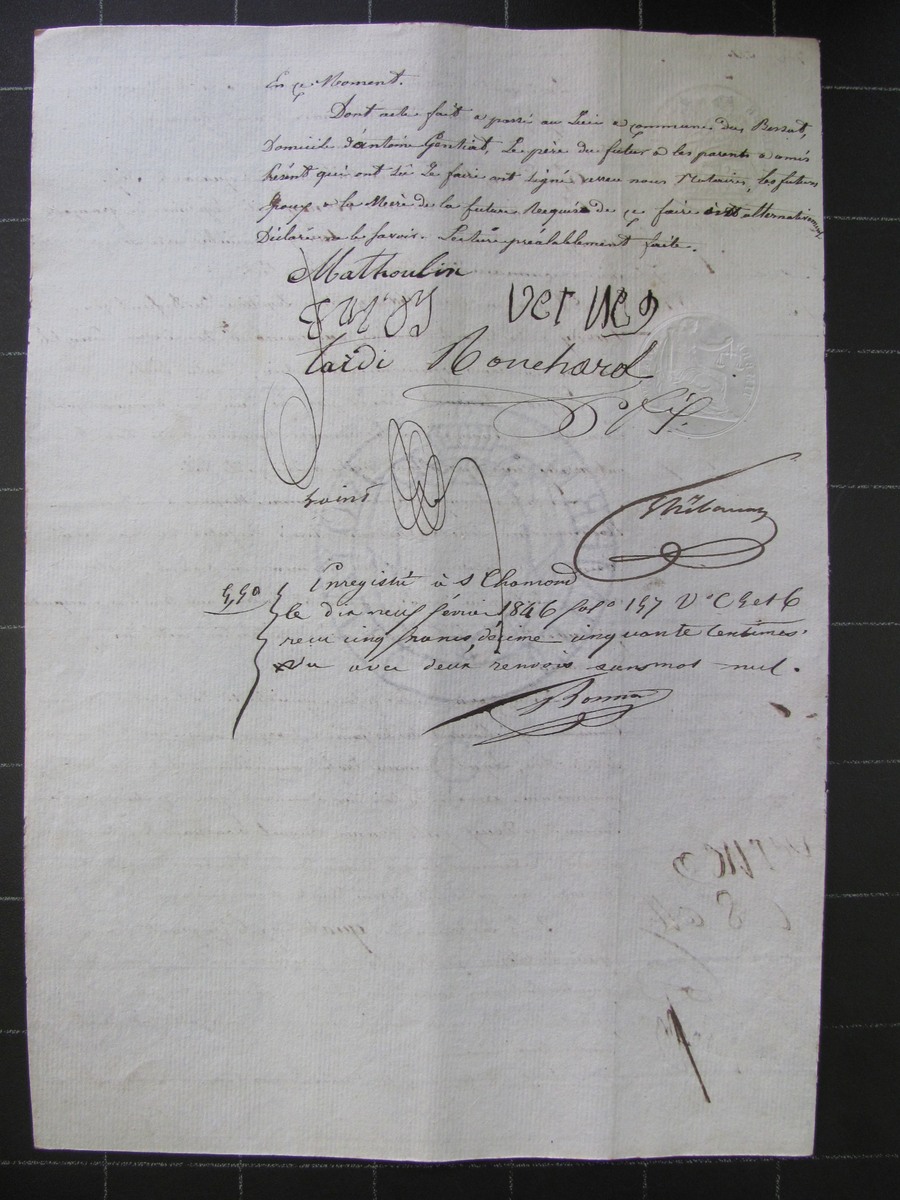 En ce Moment.
Dont acte fait a passé au Lieu & commune du Bessat,
Domicile d'antoine Gentiat, Le père du futur & les parents & amis
présent qui ont su Le faire ont signé avec nous Notaires, les futurs
Epoux & la Mère de la future Requise de ce faire ont alternativement
Déclaré ne le savoir. Lecture préalablement faite.
Mathoulin
verne
tardi Bonchard
Enregistré à St Chamond
5,50 le dix neuf février 1846 fol° 157 V° C 5 et 6
reçu cinq francs, décime cinquante Centimes.
Vu avec deux renvois sans mot nul.